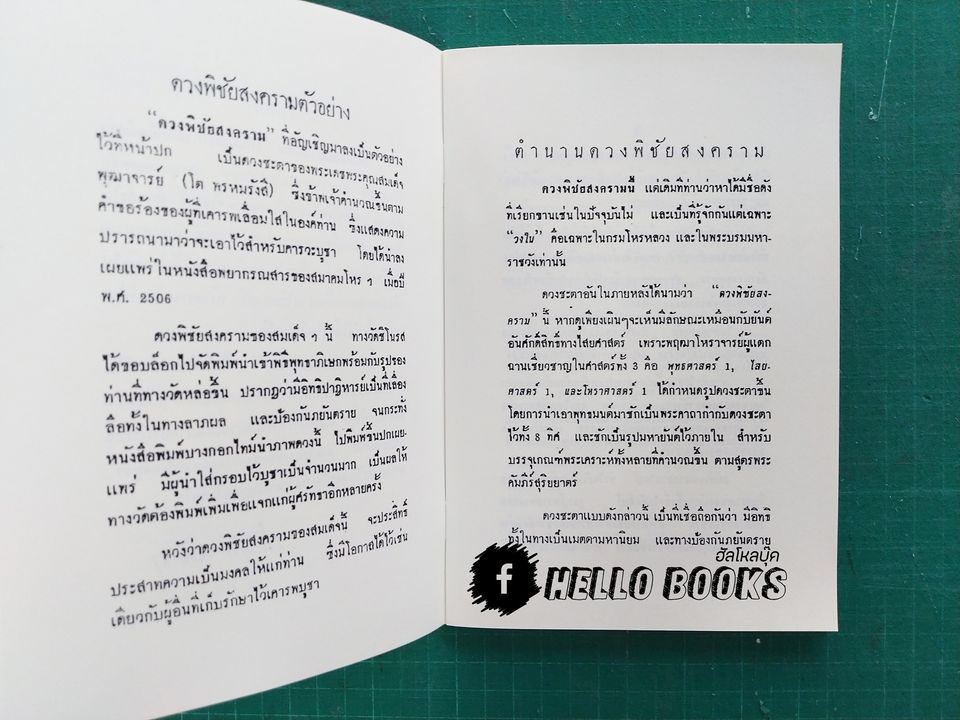 ดวงพิชัยสงครามตัวอย่าง
"ดวงพิชัยสงคราม" ที่อัญเชิญมาลงเป็นตัวอย่าง
ไว้ที่หน้าปก เป็นดวงชะตาของพระเดชพระคุณสมเด็จ
พุฒาจารย์ (โต พรหมรังสี) ซึ่งข้าพเจ้าคำนวณขึ้นตาม
คำขอร้องของผู้ที่เคารพเลื่อมใสในองค์ท่าน ซึ่งแสดงความ
ปรารถนามาว่าจะเอาไว้สำหรับคารวะบูชา โดยได้นำลง
เผยแพร่ในหนังสือพยากรณสารของสมาคมโหร ฯ เมื่อปี
พ.ศ. 2506
ดวงพิชัยสงครามของสมเด็จ ฯ นี้ ทางวัดชิโนรส
ได้ขอบล็อกไปจัดพิมพ์นำเข้าพิธีพุทธาภิเษกพร้อมกับรูปของ
ท่านที่ทางวัดหล่อขึ้น ปรากฏว่ามีอิทธิปาฏิหารย์เป็นที่เลื่อง
ลือทั้งในทางลาภผล และป้องกันภยันตราย จนกระทั่ง
หนังสือพิมพ์บางกอกไทม์นำภาพดวงนี้ ไปพิมพ์ขึ้นปกเผย-
แพร่ มีผู้นำใส่กรอบไว้บูชาเป็นจำนวนมาก เป็นผลให้
ทางวัดต้องพิมพ์เพิ่มเพื่อแจกแก่ผู้ศรัทธาอีกหลายครั้ง
หวังว่าดวงพิชัยสงครามของสมเด็จนี้ จะประสิทธิ์
ประสาทความเป็นมงคลให้แก่ท่าน ซึ่งมีโอกาสได้ไว้เช่น
เดียวกับผู้อื่นที่เก็บรักษาไว้เคารพบูชา
ตำนานดวงพิชัยสงคราม
ดวงพิชัยสงครามนี้ แต่เดิมที่ท่านว่าหาได้มีชื่อดัง
ที่เรียกขานเช่นในปัจจุบันไม่ และเป็นที่รู้จักกันแต่เฉพาะ
"วงใน" คือเฉพาะในกรมโหรหลวง และในพระบรมมหา-
ราชวังเท่านั้น
ดวงชะตาอันในภายหลังได้นามว่า "ดวงพิชัยสง-
คราม" นี้ หากดูเพียงเผินๆจะเห็นมีลักษณะเหมือนกับยันต์
อันศักดิ์สิทธิ์ทางไสยศาสตร์ เพราะพฤฒาโหราจารย์ผู้แตก
ฉานเชี่ยวชาญในศาสตร์ทั้ง 3 คือ พุทธศาสตร์ 1, ไสย-
ศาสตร์ 1, และโหราศาสตร์ 1 ได้กำหนดรูปดวงชะตาขึ้น
โดยการนำเอาพุทธมนต์มาชักเป็นพระคาถากำกับดวงชะตา
ไว้ทั้ง 8 ทิศ และชักเป็นรูปมหายันต์ไว้ภายใน สำหรับ
บรรจุเกณฑ์พระเคราะห์ทั้งหลายที่คำนวณขึ้น ตามสูตรพระ
คัมภีร์สุริยยาตร์
ดวงชะตาแบบดังกล่าวนี้ เป็นที่เชื่อถือกันว่า มีอิทธิ
ทั้งในทางเป็นเมตตามหานิยม และทางป้องกันภยันตราย
ฮัลโหลบุ๊ค
f HELLO BOOKS